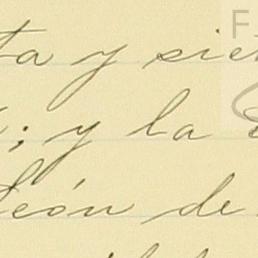 ta y sie
; y la
eón de